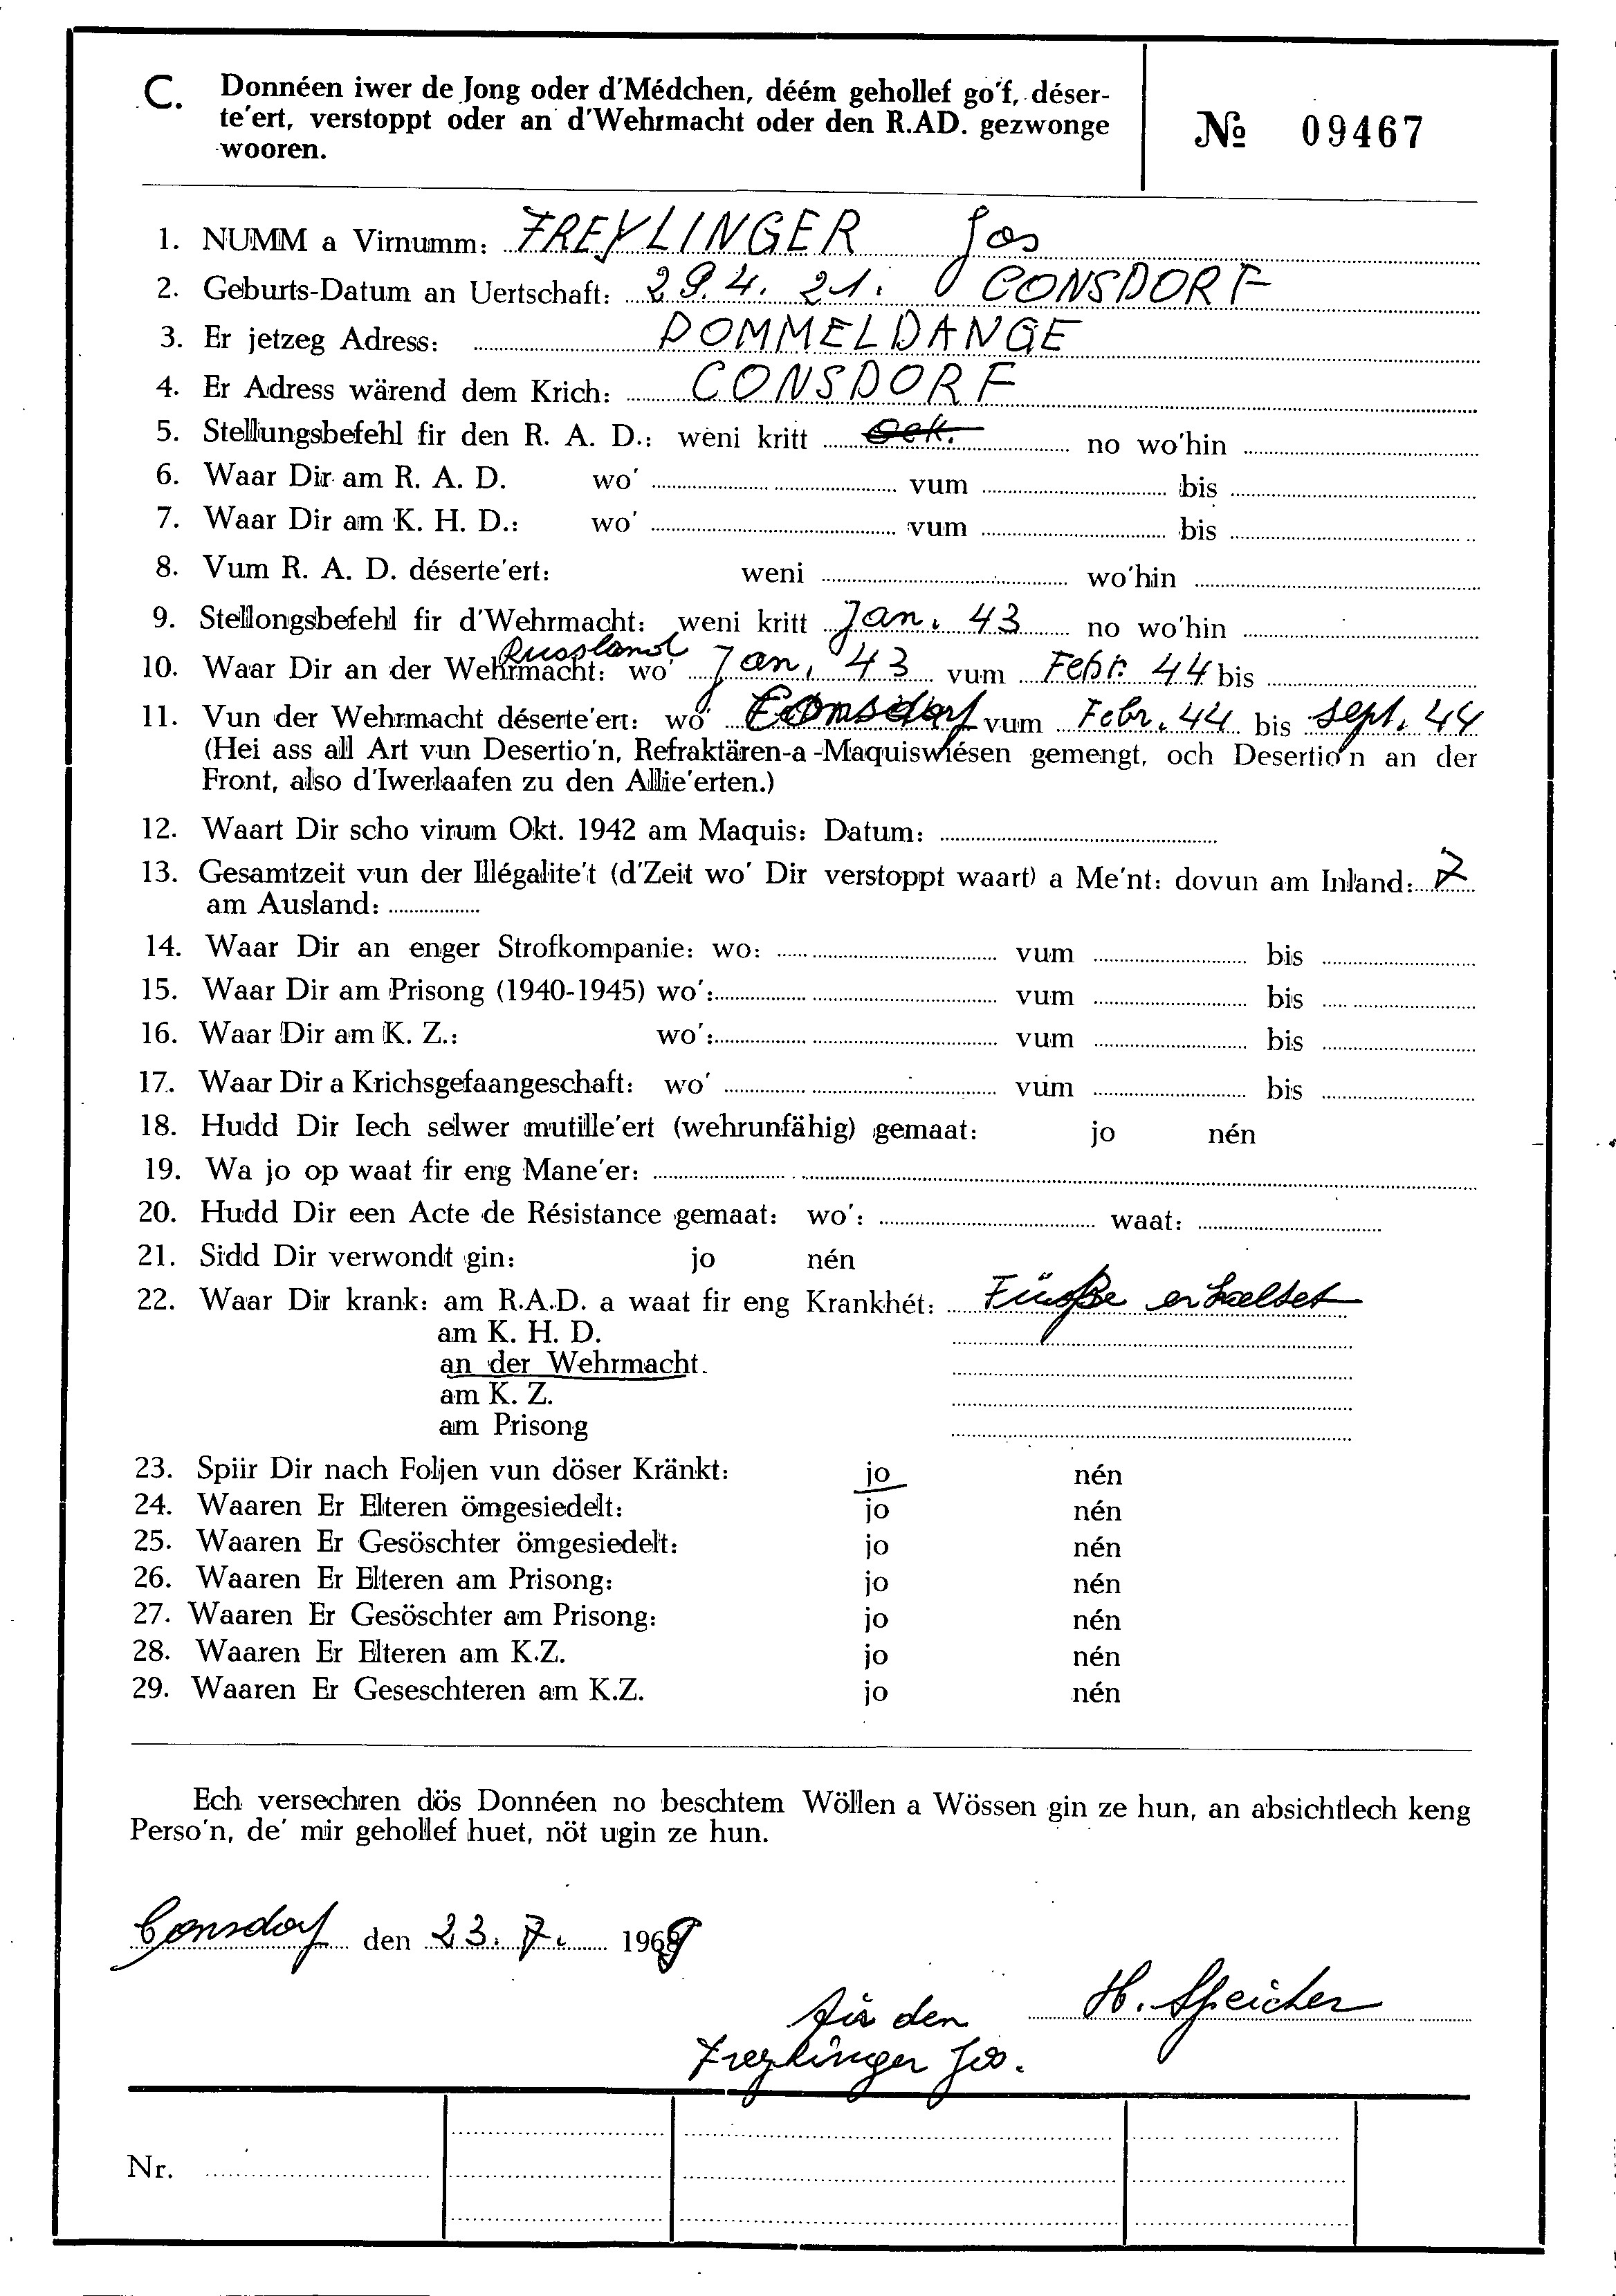 C. Donnéen iwer de Jong oder d'Médchen, déém gehollef go'f, déser-
te'ert, verstoppt oder an d'Wehrmacht oder den R.AD. gezwonge
wooren.
№ 09467
1. NUMM a Virnumm: FREYLINGER Jos
2. Geburts-Datum an Uertschaft: 29.4. 21. CONSDORF
3. Er jetzeg Adress: DOMMELDANGE
4. Er Adress wärend dem Krich: CONSDORF
5. Stellungsbefehl fir den R. A. D.: weni kritt no wo'hin
6. Waar Dir am R. A. D. wo' vum bis
7. Waar Dir am K. H. D.: wo' vum bis
8. Vum R. A. D. déserte'ert: weni wo'hin
9. Stellongsbefehl fir d'Wehrmacht: weni kritt Jan. 43 no wo'hin
10. Waar Dir an der Wehrmacht: wo' Russland Jan. 43 vum Febr. 44 bis
11. Vun der Wehrmacht déserte'ert: wo' Consdorf vum Febr. 44 bis Sept. 44
(Hei ass all Art vun Desertio'n, Refraktären-a -Maquiswiésen gemengt, och Desertio'n an der
Front, also d'Iwerlaafen zu den Allie'erten.)
12. Waart Dir scho virum Okt. 1942 am Maquis: Datum:
13. Gesamtzeit vun der Illégalite't (d'Zeit wo' Dir verstoppt waart) a Me'nt: dovun am Inland: 7
am Ausland:
14. Waar Dir an enger Strofkompanie: wo: vum bis
15. Waar Dir am Prisong (1940-1945) wo': vum bis
16. Waar Dir am K. Z.: wo': vum bis
17. Waar Dir a Krichsgefaangeschaft: wo' vum bis
18. Hudd Dir Iech selwer mutille'ert (wehrunfähig) gemaat: jo nén
19. Wa jo op waat fir eng Mane'er:
20. Hudd Dir een Acte de Résistance gemaat: wo': waat:
21. Sidd Dir verwondt gin: jo nén
22. Waar Dir krank: am R.A.D. a waat fir eng Krankhét: Füße erkaeltet
am K. H. D.
an der Wehrmacht.
am K. Z.
am Prisong
23. Spiir Dir nach Foljen vun döser Kränkt: jo nén
24. Waaren Er Elteren ömgesiedelt: jo nén
25. Waaren Er Gesöschter ömgesiedelt: jo nén
26. Waaren Er Elteren am Prisong: jo nén
27. Waaren Er Gesöschter am Prisong: jo nén
28. Waaren Er Elteren am K.Z. jo nén
29. Waaren Er Geseschteren am K.Z. jo nén
Ech versechren dös Donnéen no beschtem Wöllen a Wössen gin ze hun, an absichtlech keng
Perso'n, de' mir gehollef huet, nöt ugin ze hun.
Consdorf den 23. 7. 1969
H. Speicher
für den
Freylinger Jos.
Nr.